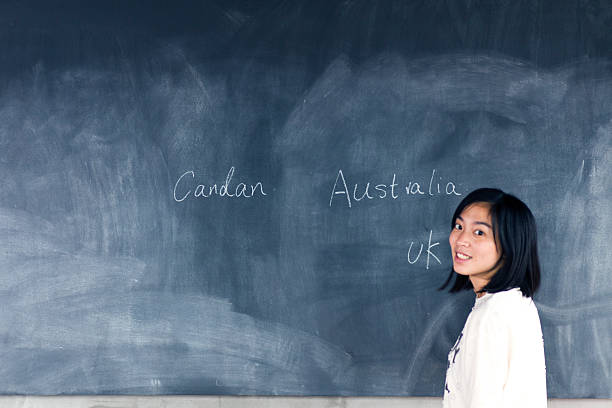 Candan Australia
UK